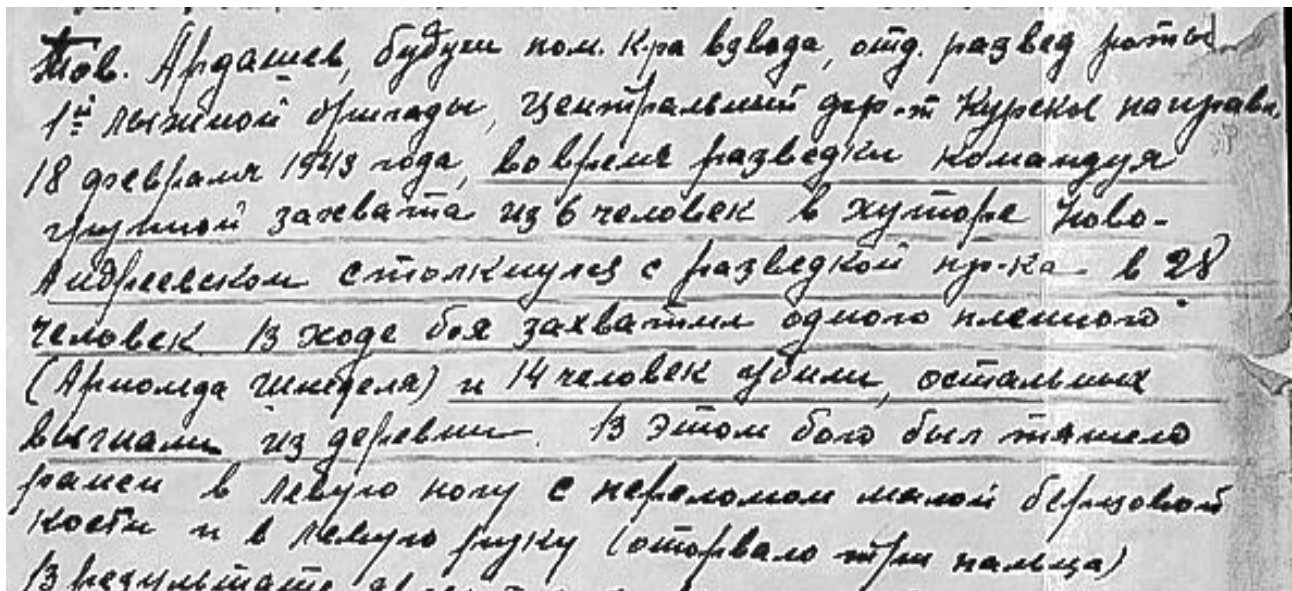 Тов. Ардашев, будучи пом. к-ра взвода, отд. развед роты
1й лыжной бригады, Центральный фр-т Курское направл.
18 февраля 1943 года, во время разведки командуя
группой захвата из 6 человек в хуторе Ново-
Андреевском столкнулся с разведкой пр-ка в 28
человек. В ходе боя захватил одного пленного
(Арнольда Шинделя) и 14 человек убили, остальных
выгнали из деревни. В этом бою был тяжело
ранен в левую ногу с переломом малой берцовой
кости и в левую руку (оторвало три пальца)
В результате